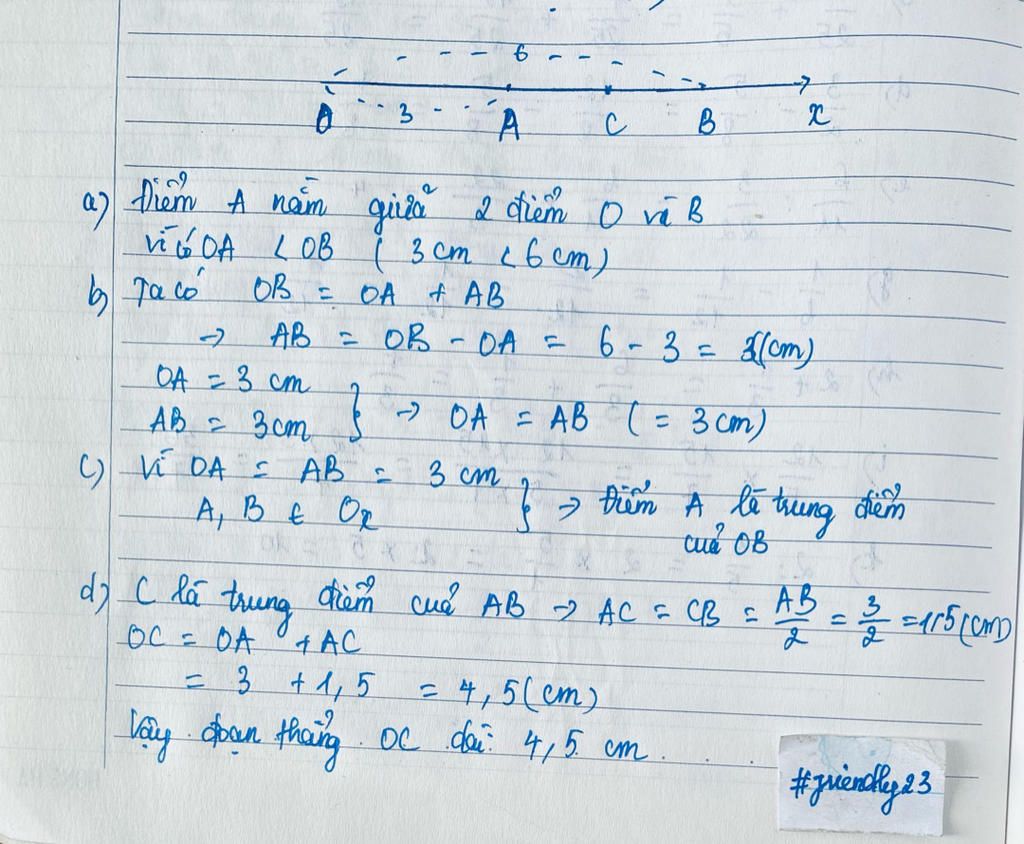 6
3
O A C B x
a) Điểm A nằm giữa 2 điểm O và B
vì có OA < OB ( 3 cm < 6 cm)
b) Ta có OB = OA + AB
→ AB = OB - OA = 6 - 3 = 3(cm)
OA = 3 cm
AB = 3cm } → OA = AB ( = 3 cm)
c) Vì OA = AB = 3 cm
A, B ∈ Ox } → Điểm A là trung điểm
của OB
d) C là trung điểm của AB → AC = CB = AB/2 = 3/2 = 1,5 (cm)
OC = OA + AC
= 3 + 1,5 = 4,5 (cm)
Vậy đoạn thẳng OC dài: 4,5 cm . . .
#friendly23